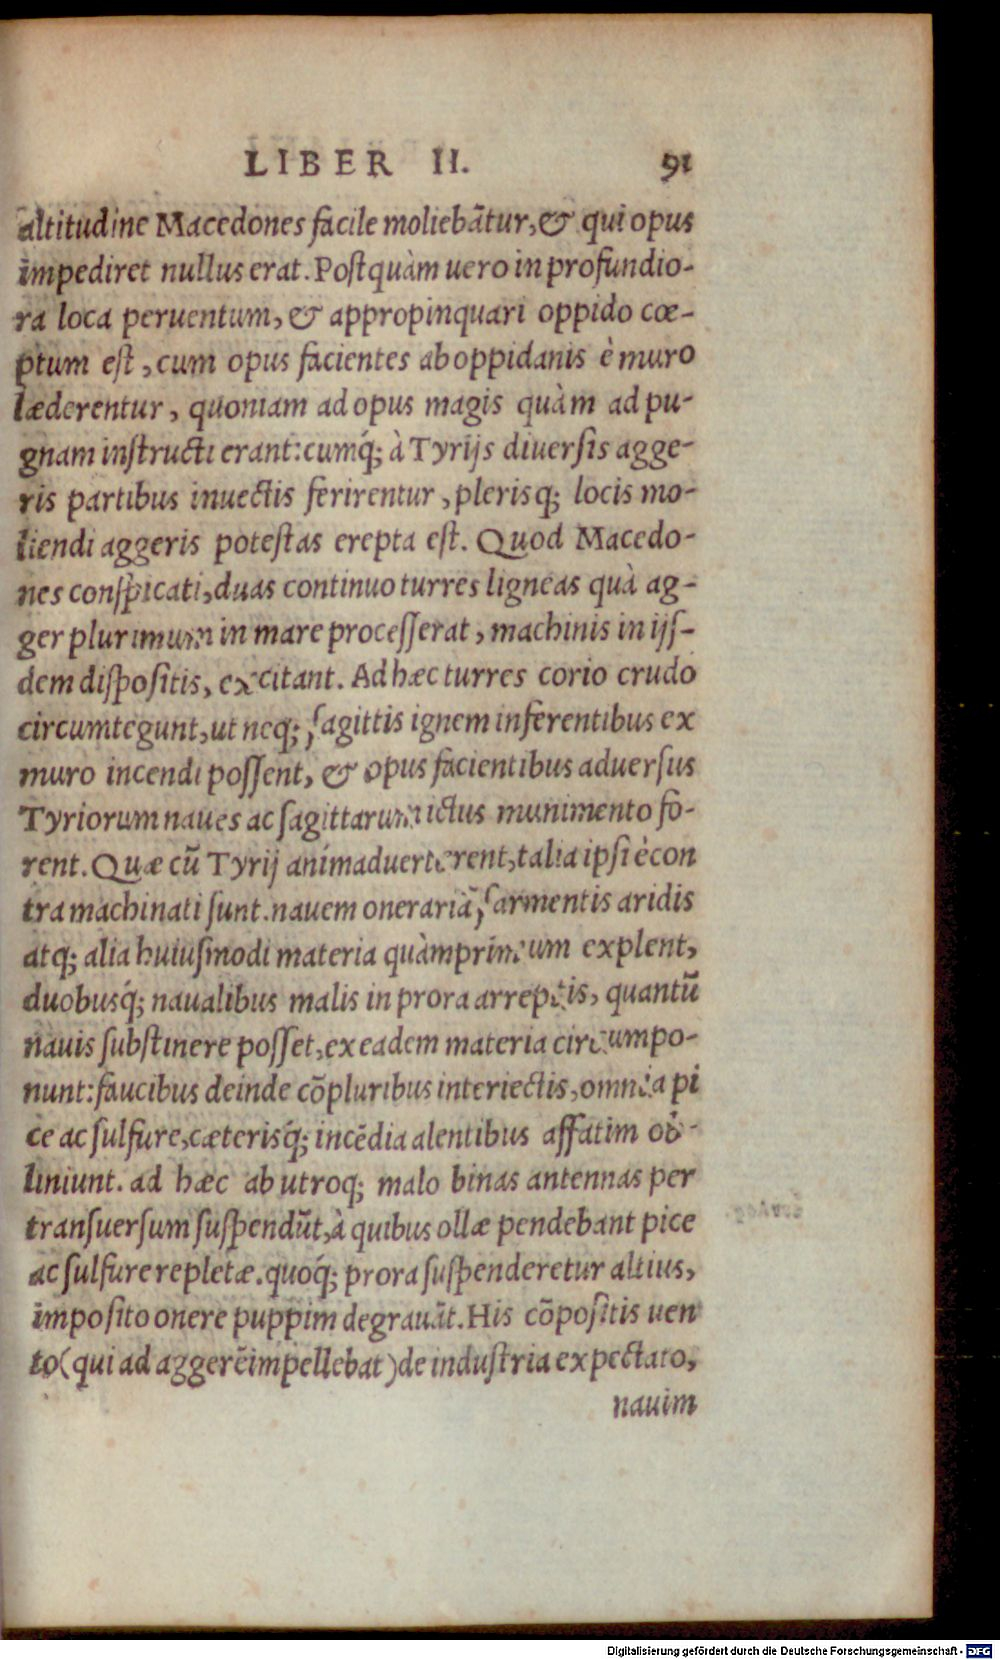 LIBER II. 91
altitudine Macedones facile moliebātur, & qui opus
impediret nullus erat. Postquàm uero in profundio-
ra loca peruentum, & appropinquari oppido cœ-
ptum est, cum opus facientes ab oppidanis è muro
læderentur, quoniam ad opus magis quàm ad pu-
gnam instructi erant: cumq́; à Tyrijs diuersis agge-
ris partibus inuectis ferirentur, plerisq; locis mo-
liendi aggeris potestas erepta est. Quod Macedo-
nes conspicati, duas continuo turres ligneas quà ag-
ger plurimum in mare processerat, machinis in ijs-
dem dispositis, excitant. Ad hæc turres corio crudo
circumtegunt, ut neq; sagittis ignem inferentibus ex
muro incendi possent, & opus facientibus aduersus
Tyriorum naues ac sagittarum ictus munimento fo-
rent. Quæ cū Tyrij animaduerterent, talia ipsi ècon
tra machinati sunt. nauem onerariā, sarmentis aridis
atq; alia huiusmodi materia quàmprimum explent,
duobusq́; naualibus malis in prora arreptis, quantū
nauis substinere posset, ex eadem materia circumpo-
nunt: faucibus deinde cōpluribus interiectis, omnia pi
ce ac sulfure, cæterisq́; incēdia alentibus affatim ob-
liniunt. ad hæc ab utroq; malo binas antennas per
transuersum suspendūt, à quibus ollæ pendebant pice
ac sulfure repletæ. quoq́; prora suspenderetur altius,
imposito onere puppim degrauāt. His cōpositis uen
to (qui ad aggerē impellebat) de industria expectato,
nauim
Digitalisierung gefördert durch die Deutsche Forschungsgemeinschaft - DFG